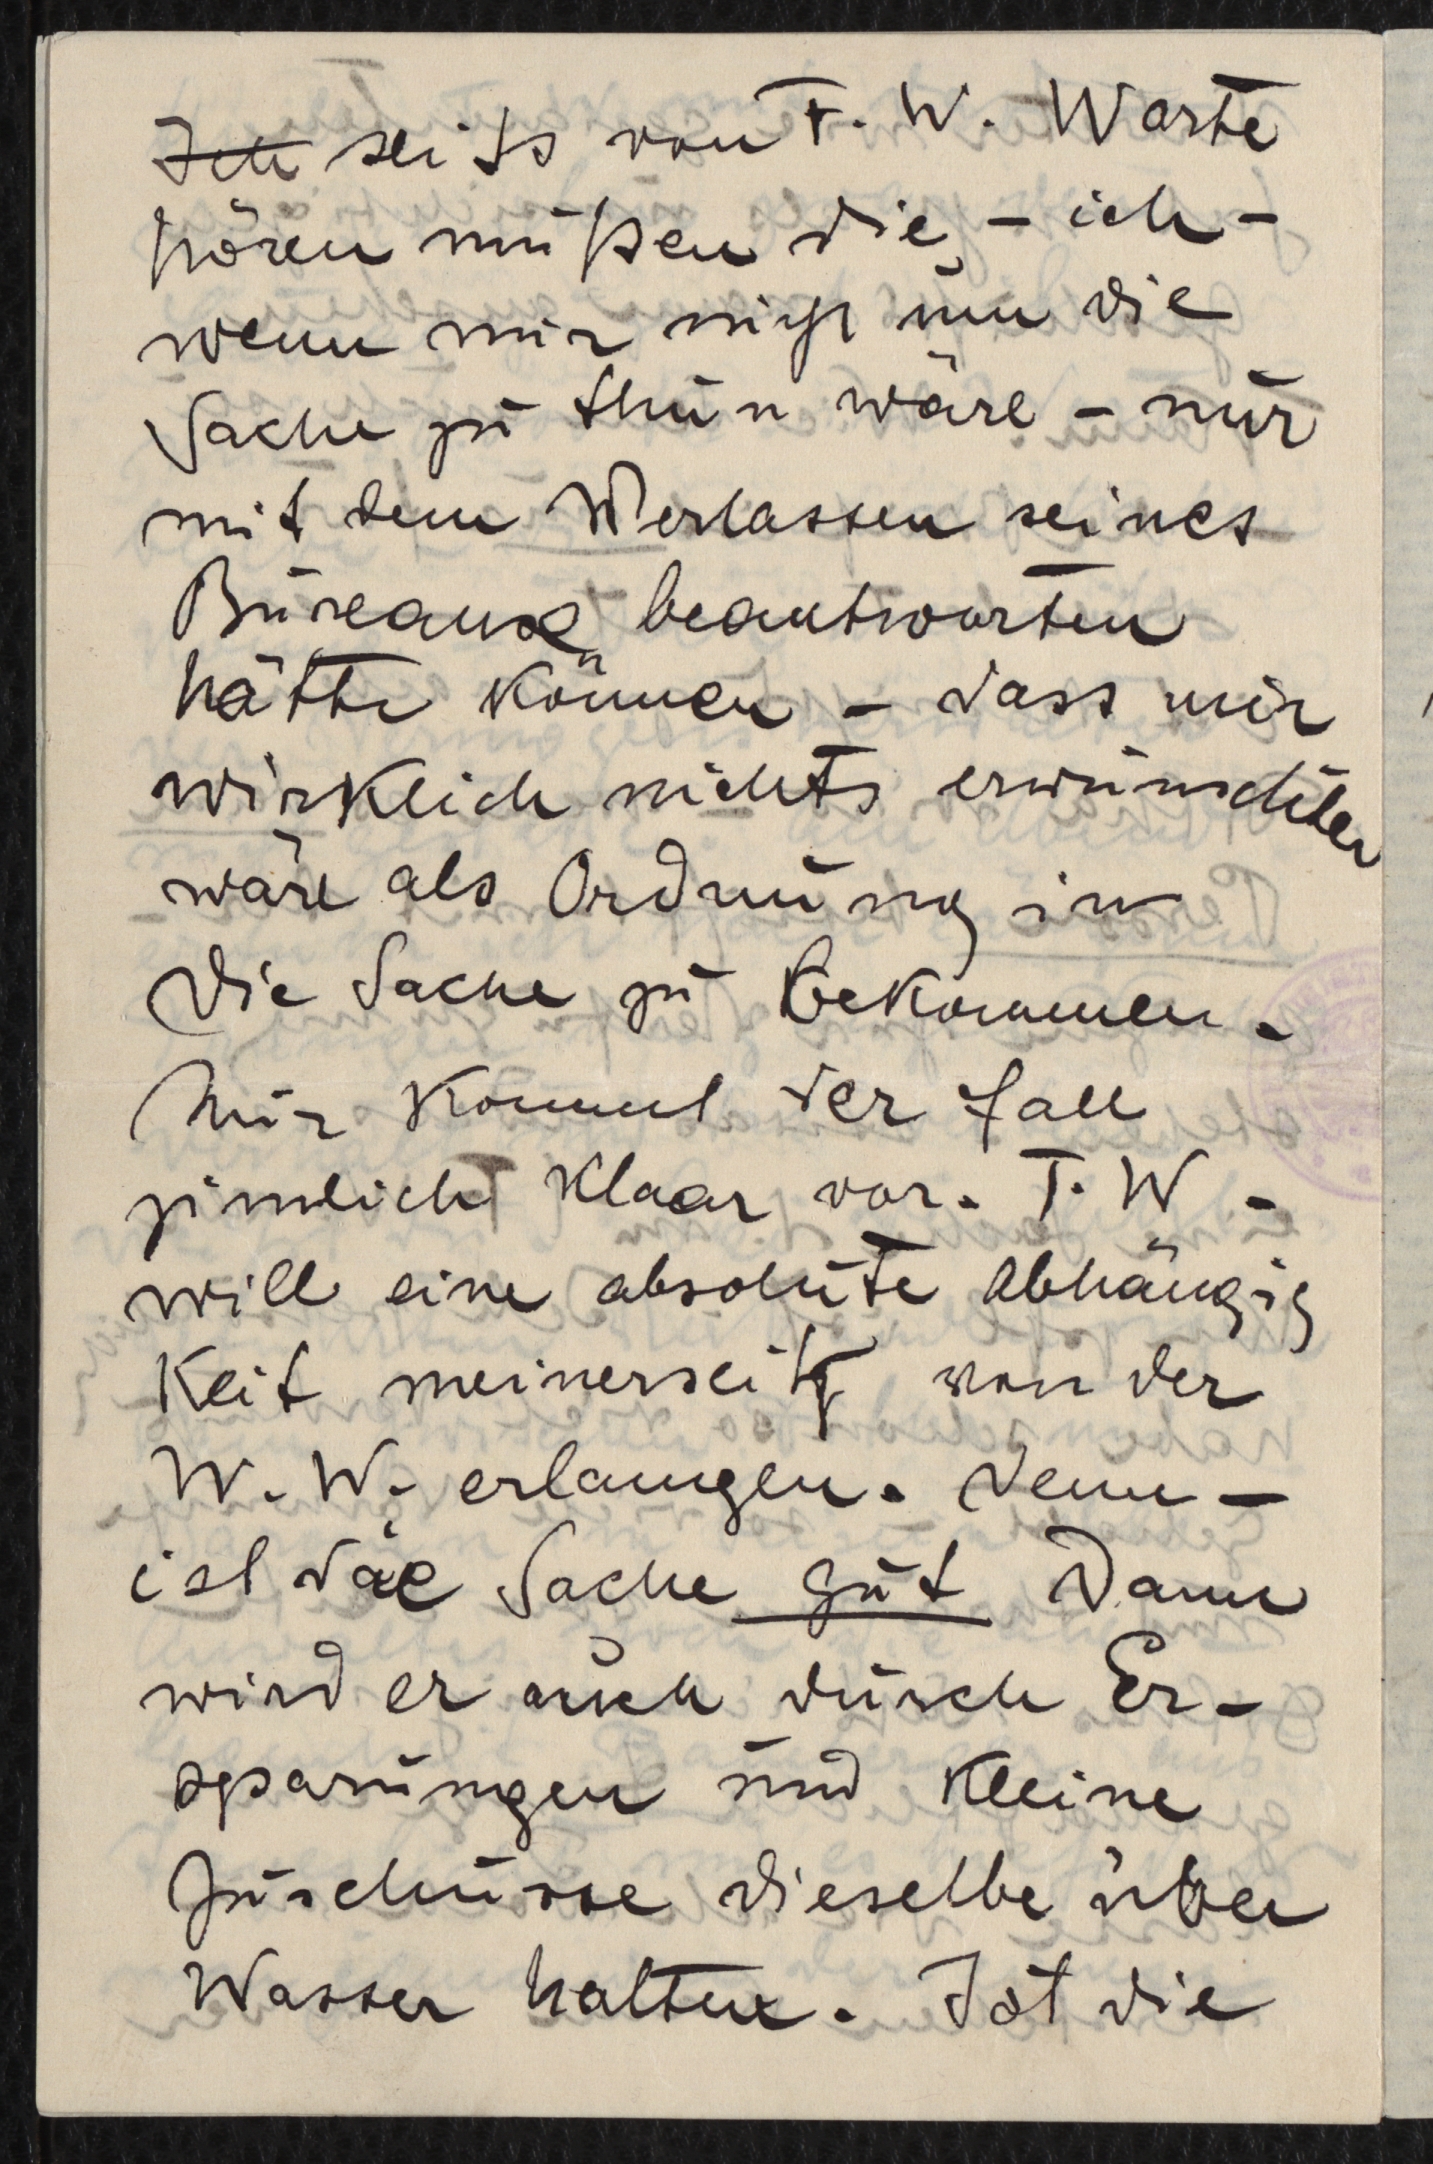 Ich seits von F. W. Worte
hören müßen die, - ich -
wenn mir nicht um die
Sache zu thun wäre - nur
mit dem Verlassen seines
Büreaux beantworten
hätte können - dass mir
wirklich nichts erwünschter
wäre als Ordnung in
die Sache zu bekommen.
Mir kommt der Fall
zimlich klaar vor. F. W -
will eine absolute Abhängig
keit meinerseits von der
W. W. erlangen. Denn -
ist die Sache gut Dann
wird er auch durch Er-
sparungen und kleine
Zuschüsse dieselbe über
Wasser halten. Ist die